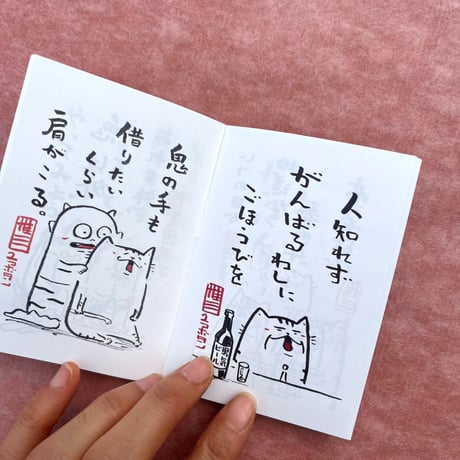 人知れず
がんばるわしに
ごほうびを
鬼の手も
借りたいくらい
肩がこる。